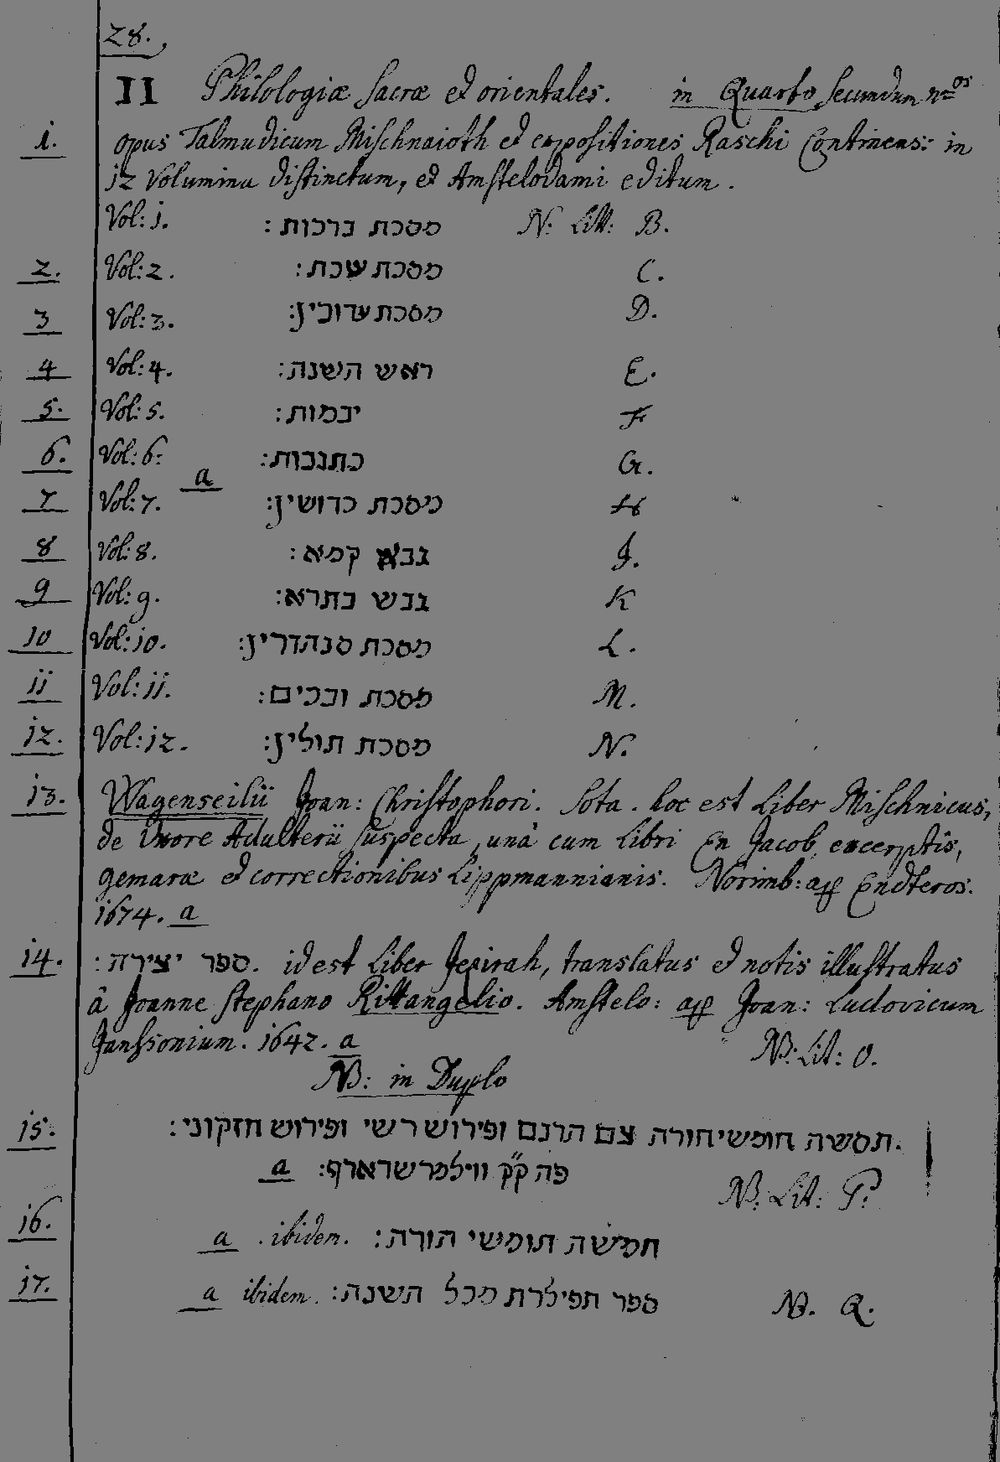 28.
II Philologiæ Sacræ et orientales. in Quarto secundum n<sup>os</sup>
1. opus Talmudicum Mischnaioth et expositiones Raschi Continens: in
12 Volumina distinctum, et Amstelodami editum.
Vol: 1. מסכת ברכות: N: Litt: B.
2. Vol: 2. מסכת שבת: C.
3 Vol: 3. מסכת ערובין: D.
4 Vol: 4. ראש השנה: E.
5. Vol: 5. יבמות: F
6. Vol: 6: כתובות: G.
a
7 Vol: 7. מסכת כדושין: H
8 Vol: 8. בבא קמא: J.
9 Vol: 9. בבש בתרא: K
10 Vol: 10. מסכת סנהדרין: L.
11 Vol: 11. מסכת זבכים: M.
12. Vol: 12. מסכת תולין: N.
13. Wagenseilii Joan: Christophori. Sota. hoc est Liber Mischnicus,
de Uxore Adulterii suspecta, unà cum Libri En Jacob excerptis,
gemaræ et correctionibus Lippmannianis. Norimb: ap Endteros.
1674. a
14. ספר יצירה: id est Liber Jezirah, translatus et notis illustratus
â Joanne Stephano Rittangelio. Amstelo: ap Joan: Ludovicum
Janssonium. 1642. a N: Lit: O.
NB: in Duplo
15. חומשי תורה ופירוש רשי ופירוש חזקוני:
פה ק״ק a N: Lit: P.
16. חמישה תומשי תורה: ibidem. a
17. ספר תפילות מכל השנה: ibidem. a N. Q.